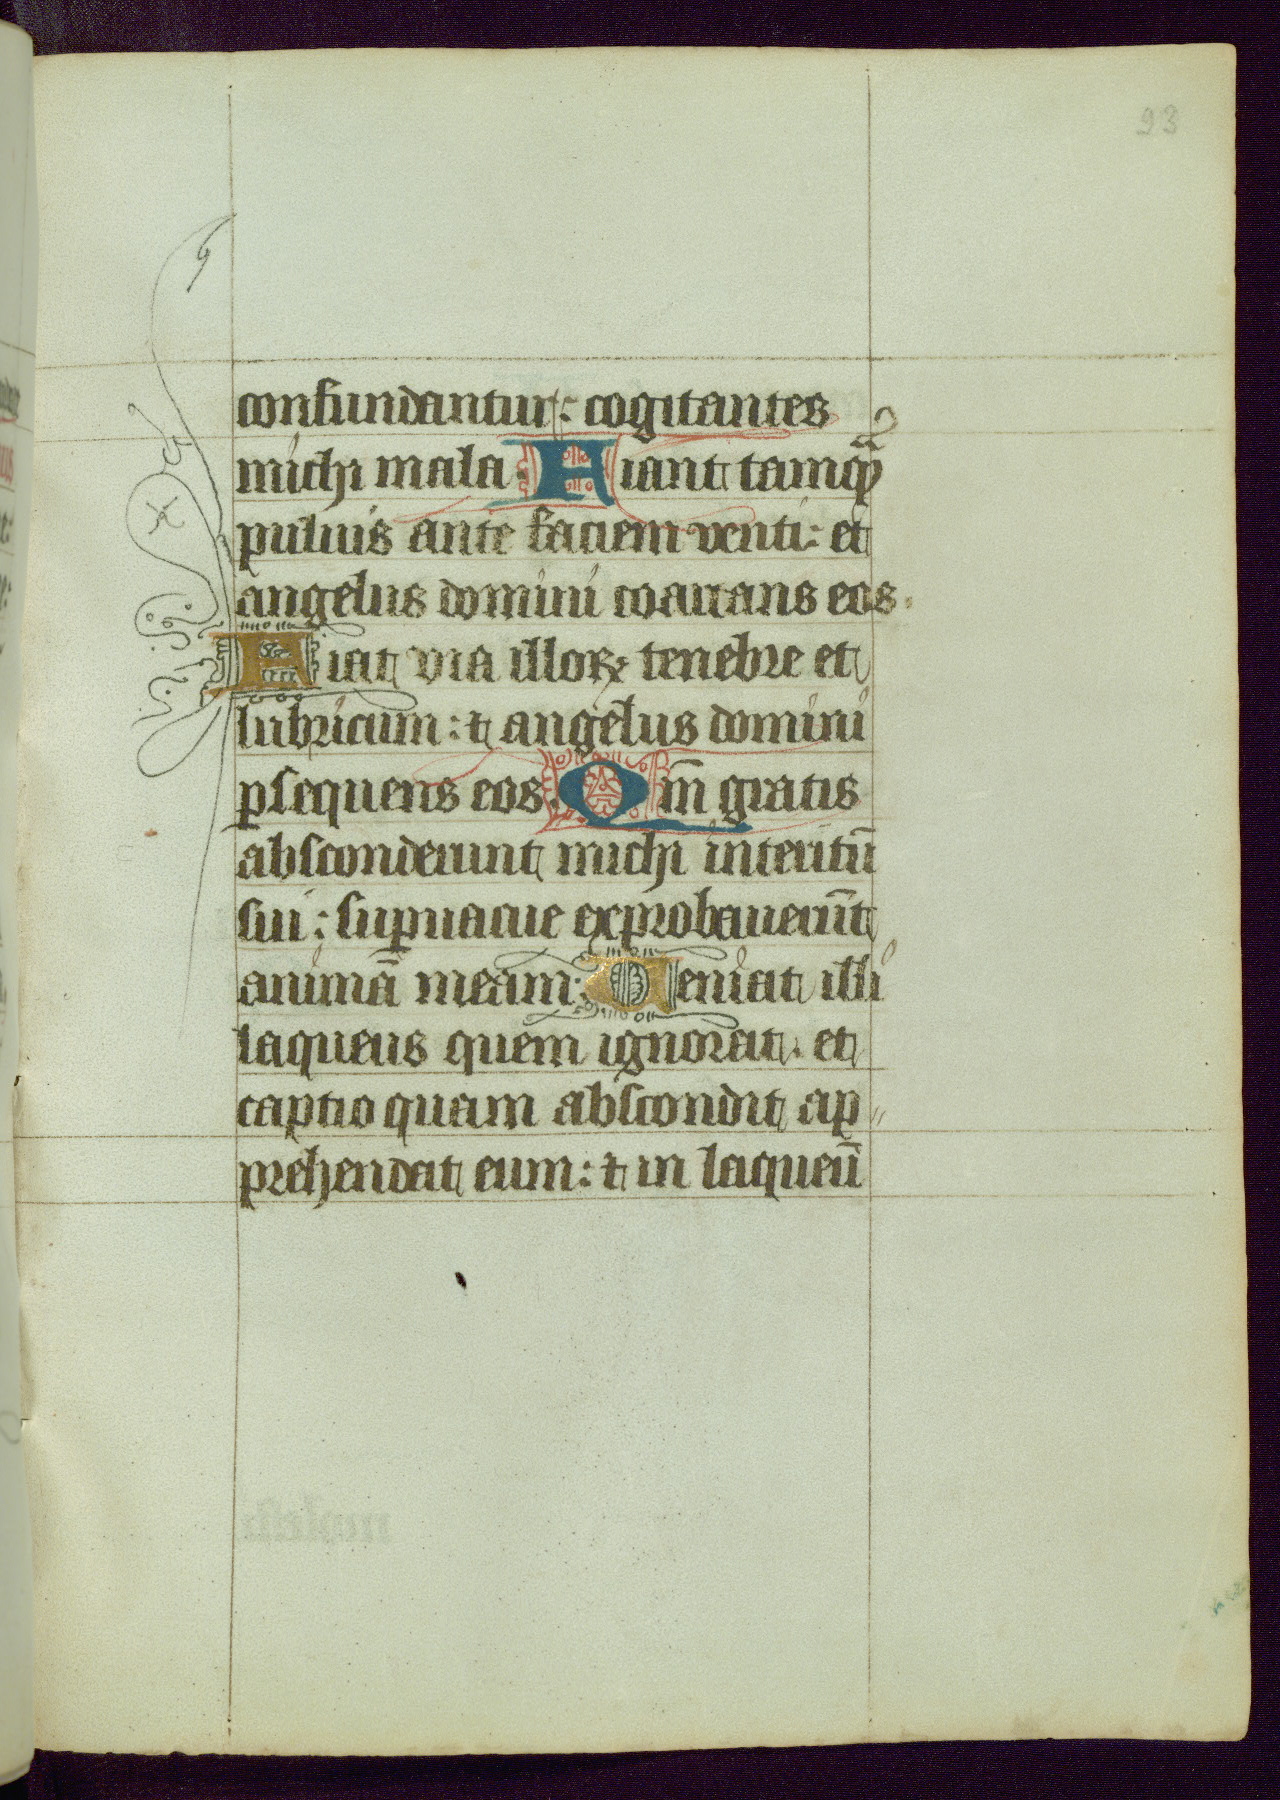 23
confundantur: cogitantes
michi mala. Fiant tamqᷓ
puluis ante faciem venti: et
angelus domini coartans eos.
Fiat via illoꝝ tenebre et
lubricum: ⁊ angelus domini
ꝑsequens eos. Qm̄ gratis
absconderunt michi interitū
sui: suꝑuacue exprobauerūt
animā meam: Veniat illi
laqueus quem ignorat. et
captio quam abscondit ap〃
prehendat eum: ⁊ in laqueū